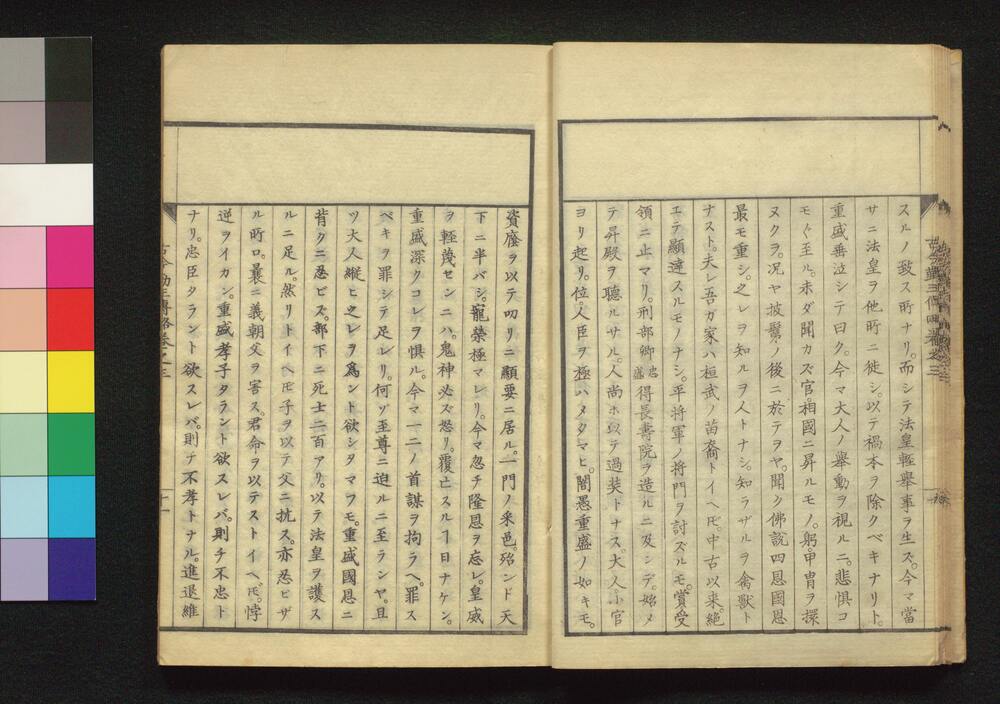 スルノ致ス所ナリ。而シテ法皇輕擧事ヲ生ス。今マ當
サニ法皇ヲ他所ニ徙シ。以テ禍本ヲ除クベキナリト。
重盛垂泣シテ曰ク。今マ大人ノ擧動ヲ視ルニ。悲惧コ
モ〱至ル。未ダ聞カズ官。相國ニ昇ルモノ。躬。甲冑ヲ擐
ヌクヲ。況ヤ披鬄ノ後ニ於テヲヤ。聞ク佛說四恩國恩
最モ重シ。之レヲ知ルヲ人トナシ。知ラザルヲ禽獸ト
ナスト。夫レ吾ガ家ハ桓武ノ苗裔トイヘ𪜈。中古以来。絶
エテ顯達スルモノナシ。平将軍ノ将門ヲ討ズルモ。賞受
領ニ止マリ。刑部卿忠盛得長壽院ヲ造ルニ及シデ。始メ
テ昇殿ヲ聽ルサル。人尚ホ以テ過奘トナス。大人。小官
ヨリ起リ。位。人臣ヲ極ハメタマヒ。闇愚重盛ノ如キモ。
資廕ヲ以テ叨リニ顯要ニ居ル。一門ノ釆邑。殆ンド天
下ニ半バシ。寵榮極マレリ。今マ忽チ隆恩ヲ忘レ。皇威
ヲ輕蔑センニハ。鬼神必ズ怒リ。覆亡スルヿ日ナケン。
重盛深クコレヲ惧ル。今マ一二ノ首謀ヲ拘ラヘ。罪ス
ベキヲ罪シテ足レリ。何ゾ至尊ニ迫ルニ至ランヤ。且
ツ大人縦ヒ之レヲ爲ント欲シタマフモ。重盛國恩ニ
背クニ忍ビズ。部下ニ死士二百アリ。以テ法皇ヲ護ス
ルニ足ル。然リトイヘ𪜈子ヲ以テ父ニ抗ス。亦忍ビザ
ル所ロ。曩ニ義朝父ヲ害ス。君命ヲ以テストイヘ𪜈。悖
逆ヲイカン。重盛孝子タラント欲スレバ。則チ不忠ト
ナリ。忠臣タラント欲スレバ。則チ不孝トナル。進退維